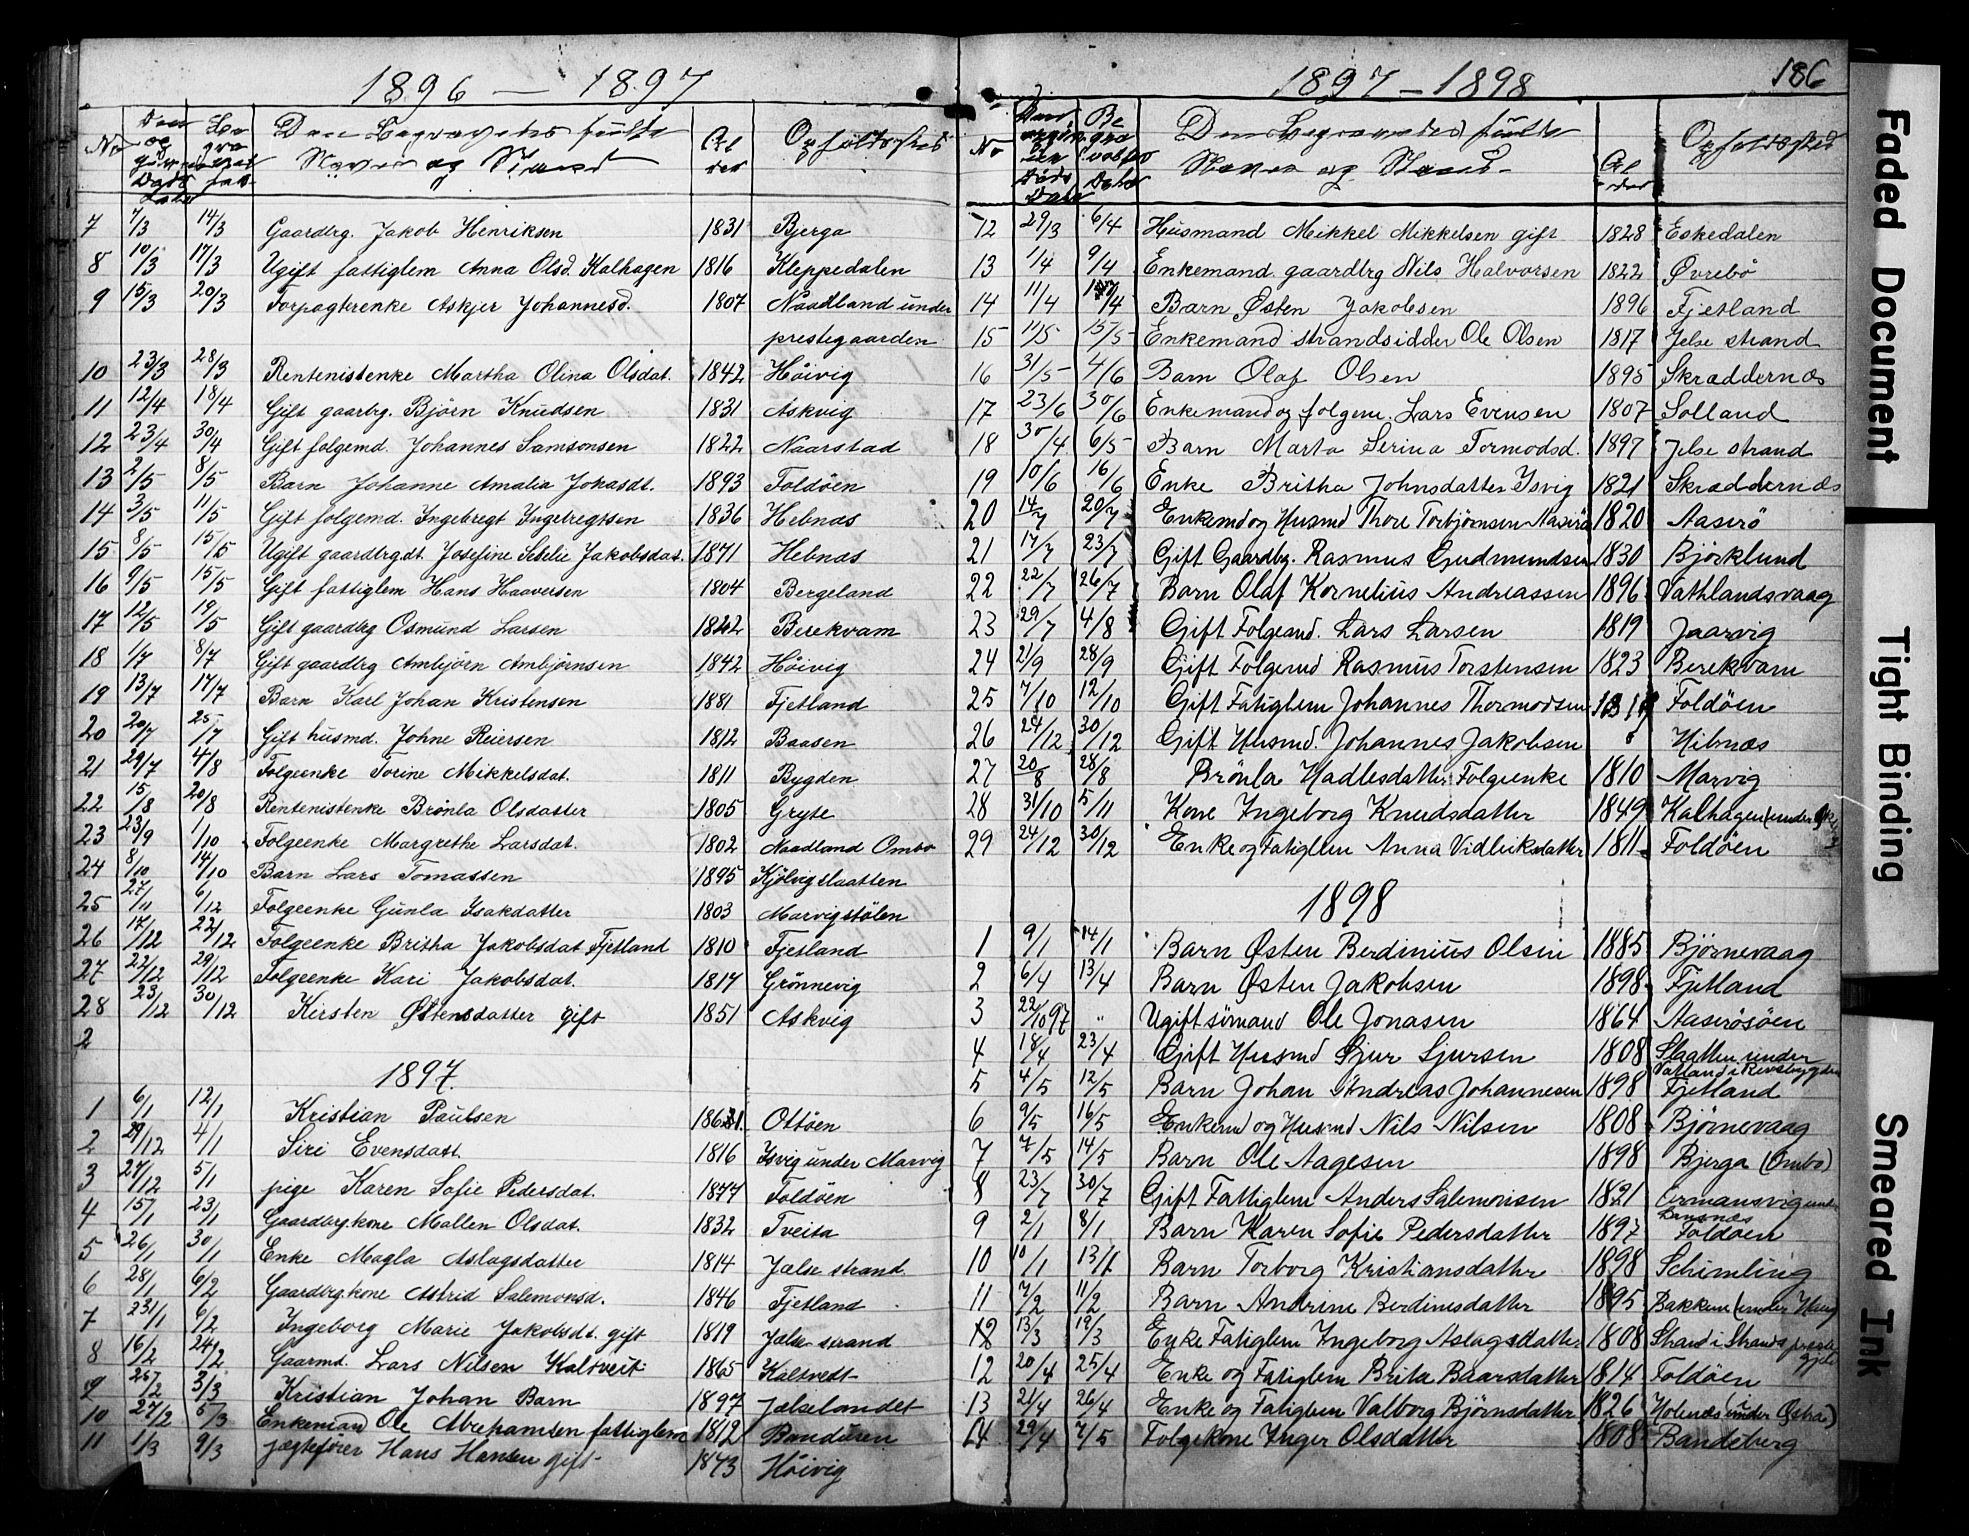 1896 — 1897
No
Den Begravedes fulde
Navn og Stand
Al
der
Opholdssted
7 7/3 14/3 Gaardbrg. Jakob Henriksen 1831 Bjerga
8 10/3 17/3 Ugift fattiglem Anna Olsd. Kalhagen 1816 Kleppedalen
9 15/3 20/3 Forpagterenke Askjer Johannesd. 1807 Naadland under
prestegaarden
10 23/3 28/3 Rentenistenke Martha Olina Olsdat. 1842 Höivig
11 12/4 18/4 Gift gaarbrg. Björn Knudsen 1831 Askvig
12 23/4 30/4 Gift folgemd. Johannes Samsonsen 1822 Naarstad
13 2/5 8/5 Barn Johanne Amalia Jonasdt. 1893 Foldöen
14 3/5 11/5 Gift folgemd. Ingebregt Ingebregtsen 1836 Hebnæs
15 8/5 15/5 Ugift gaardbrgdt. Josefine Sebelie Jakobsdat. 1871 Hebnæs
16 9/5 15/5 Gift fattiglem Hans Haaversen 1804 Bergeland
17 12/5 19/5 Gift gaardbrg Osmund Larsen 1822 Berekvam
18 1/7 8/7 Gift gaardbrg Ambjörn Ambjörnsen 1842 Höivig
19 13/7 17/7 Barn Karl Johan Kristensen 1881 Fjetland
20 20/7 25/7 Gift husmd. Johne Reiersen 1812 Baasen
21 29/7 4/8 Folgeenke Torine Mikkelsdat. 1811 Bygden
22 15/8 20/8 Rentenistenke Brönla Olsdatter 1805 Gryte
23 23/9 1/10 Folgeenke Margrethe Larsdat. 1802 Naadland Ombo
24 8/10 14/10 Barn Lars Tomassen 1895 Kjölvigslaatten
25 27/11 6/12 Folgeenke Gunla Isakdatter 1803 Marvigstölen
26 17/12 22/12 Folgeenke Britha Jakobsdat Fjetland 1810 Fjetland
27 22/12 29/12 Folgeenke Kari Jakobsdat. 1817 Grönnevig
28 23/12 30/12 Kirsten Østensdatter gift 1851 Askvig
2
1897.
1 6/1 12/1 Kristian Paulsen Ottöen
2 29/12 4/1 Siri Evensdatt. 1816 Isvig under Marvig
3 27/12 5/1 pige Karen Sofie Pedersdat. 1877 Foldöen
4 15/1 23/1 Gaardbrg.kone Mallen Olsdat. 1832 Tveita
5 26/1 30/1 Enke Magla Aslagsdatter 1814 Jælse strand
6 28/1 6/2 Gaardbrg.kone Astrid Salemonsd. 1846 Fjetland
7 231/1 6/2 Ingeborg Marie Jakobsdt. gift 1819 Jælse strand
8 16/2 24/2 Gaarmd. Lars Nilsen Kaltveit 1865 Kaltvedt
9 3/3 Kristian Johan Barn 1897 Jælselandet
10 27/2 5/3 Enkeman Ole Abrehamsen fattiglem 1812
11 1/3 9/3 jægtefører Hans Hansen gift 1843 Höivig
1897 – 1898
186
No
Den Begravedes fulde
Navn og Stand
Al
der
Opholdssted
12 29/3 6/4 Husmand Mikkel Mikkelsen gift 1828 Eskedalen
13 1/4 9/4 Enkemand. gaardbrg Nils Halvorsen 1822 Øvrebö
14 11/4 17/4 Barn Østen Jakobsen 1896 Fjetland
15 11/5 15/5 Enkemand strandsidder Ole Olsen 1817 Jelse strand
16 31/5 4/6 Barn Olaf Olsen 1895 Skræddernæs
17 23/6 30/6 Enkemand og folgem. Lars Evensen 1807 Solland
18 30/4 6/5 Barn Marta Serina Tormodsd. 1897 Jelse strand
19 10/6 16/6 Enke Britha Johnsdatter Isvig 1821 Skræddernæs
20 14/7 20/7 Enkemd og Husmd Thore Torbjörnsen Aaserö 1820 Aaserö
21 17/7 23/7 Gift Gaardbg. Rasmus Gudmundsen 1830 Björklund
22 22/7 26/7 Barn Olaf Kornelius Andreassen 1896 Vathlandsvaag
23 29/7 4/8 Gift Folgemd. Lars Larsen 1819 Jaarvig
24 21/9 28/9 Gift Folgemd Rasmus Torstensen 1823 Berekvam
25 7/10 12/10 Gift Fatiglem Johannes Thormodsen Foldöen
26 24/12 30/12 Gift Husmd. Johannes Jakobsen Hibnæs
27 20/8 28/8 Brönla Hadlesdatter Folgeenke 1810 Marvig
28 31/10 5/11 Kone Ingeborg Knudsdatter 1849 Kalhagen (under
29 24/12 30/12 Enke og Fatiglem Anna Vidleiksdatter 1811 Foldöen
1898
1 9/1 14/1 Barn Østen Berdinius Olsen 1885 Björnevaag
2 6/4 13/4 Barn Østen Jakobsen 1898 Fjetland
3 22/10 97 " Ugift sömand Ole Jonasen 1864 Aaserösöen
4 18/4 23/4 Gift Husmd Sjur Sjursen 1808 Slaatten under
Vatland i Hersbygden
5 4/5 12/5 Barn Johan Andreas Johannesen 1898 Fjetland
6 9/5 16/5 Enkemd og Husmd Nils Nilsen 1808 Björnevaag
7 7/5 14/5 Barn Ole Aagesen 1898 Bjerga (Ombo)
8 23/7 30/7 Gift Fattiglem Anders Salemonsen 1821 Ermansvig under
9 2/1 8/1 Barn Karen Sofie Pedersdatter 1897 Foldöen
10 10/1 13/1 Barn Torborg Kristiansdatter 1898 Schimling
11 7/2 11/2 Barn Andrine Berdinesdatter 1895 Bakken (under Haug)
12 13/3 19/3 Enke Fatiglem Ingeborg Aslagsdatter 1808 Strand i Strands preste
gjeld
12 20/4 25/4 Enke og Fatiglem Brita Baarsdatter 1814 Foldöen
13 21/4 26/4 Enke og Fatiglem Valborg Björnsdatter 1826 Holmnæs (under Østraa)
14 29/4 7/5 Folgekone Inger Olsdatter 1808 Bandeberg
Faded Document
Tight Binding
Smeared Ink